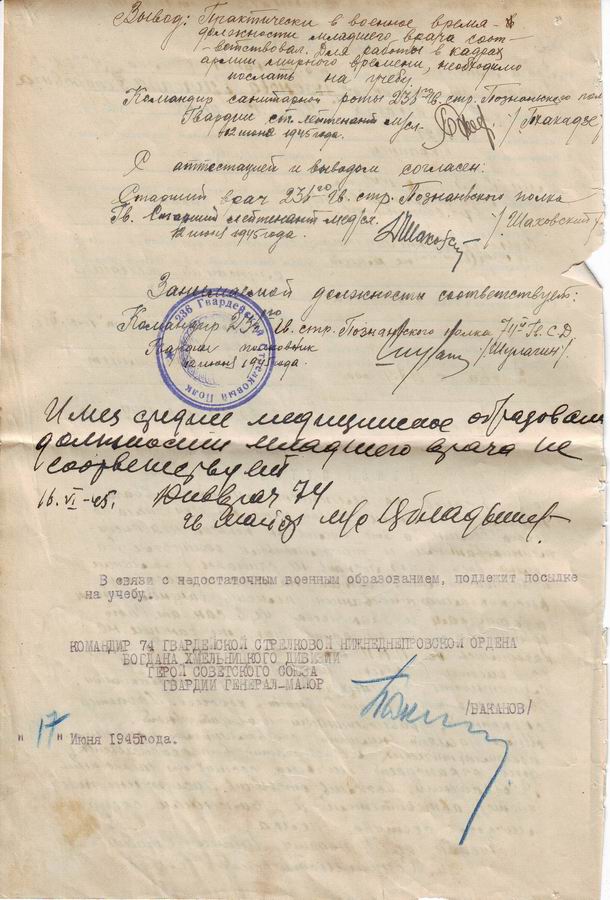 Вывод: Практически в военное время
должности младшего врача соот-
ветствовал. Для работы в кадрах
армии мирного времени, необходимо
послать на учебу.
Командир санитарной роты 236го Гв. стр. Познанского пол
Гвардии ст. лейтенант м/сл /Ткакадзе
12 июня 1945 года.
С аттестацией и выводом согласен:
Старший врач 236го Гв. стр. Познанского полка
Гв. Старший лейтенант мед/сл. /Шаховский/
12 июня 1945 года.
Занимаемой должности соответствует:
Командир 236го Гв. стр. Познанского полка 74й Гв. С.Д.
Гвардии полковник /Шулагин/.
12 июня 1945 года.
236 Гвардейский Стрелковый Полк
Имея среднее медицинское образован
должности младшего врача не
соответствует
16.VI-45. Дивврач 74
гв майор м/с
В связи с недостаточным военным образованием, подлежит посылке
на учебу.
КОМАНДИР 74 ГВАРДЕЙСКОЙ СТРЕЛКОВОЙ НИЖНЕДНЕПРОВСКОЙ ОРДЕНА
БОГДАНА ХМЕЛЬНИЦКОГО ДИВИЗИИ
ГЕРОЙ СОВЕТСКОГО СОЮЗА
ГВАРДИИ ГЕНЕРАЛ-МАЙОР
/БАКАНОВ/
"17" Июня 1945года.